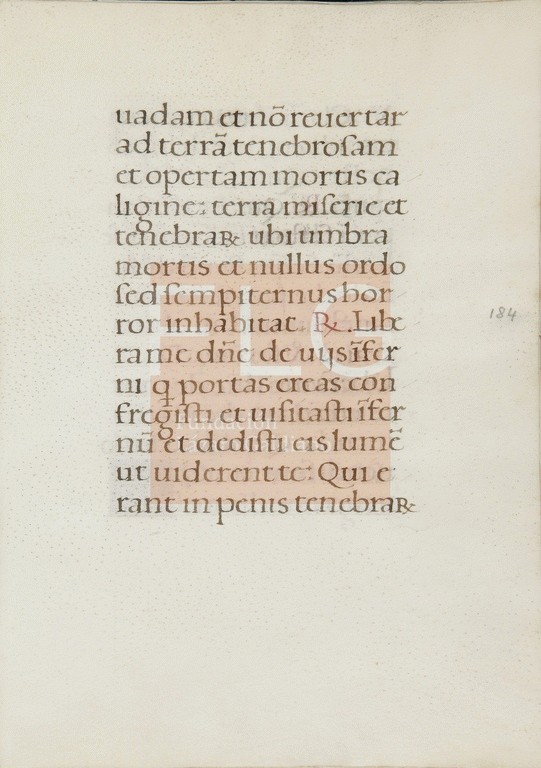 uadam et nõ reuertar
ad terrã tenebrosam
et opertam mortis ca
ligine: terra miserie et
tenebraꝝ ubi umbra
mortis et nullus ordo
sed sempiternus hor
ror inhabitat. ℞. Libe
ra me dñe de uijs ĩfer
ni q portas ereas con
fregisti et uisitasti ĩfer
nũ et dedisti eis lumẽ
ut uiderent te: Qui e
rant in penis tenebraꝝ
184
FLG
Fundación